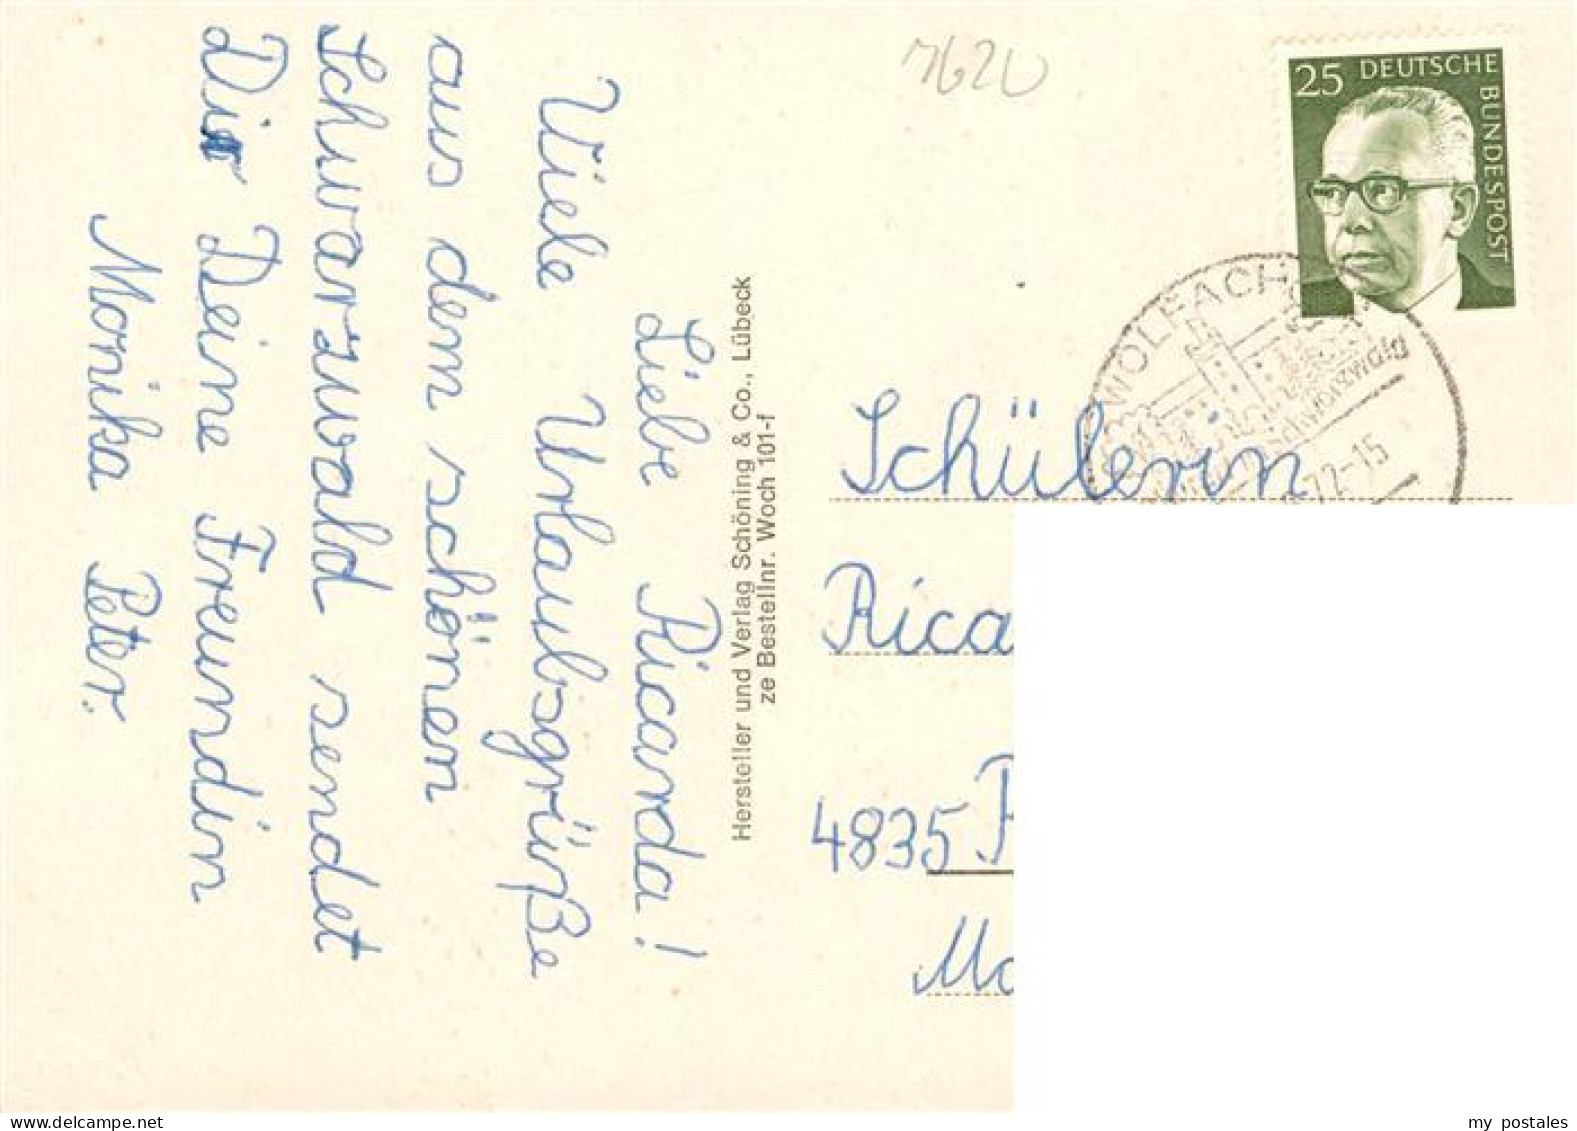 Liebe Ricarda!
Viele Urlaubsgrüße
aus dem schönen
Schwarzwald sendet
Dir Deine Freundin
Monika Peter.
Hersteller und Verlag Schöning & Co., Lübeck
ze Bestellnr. Woch 101-f
7620
25 DEUTSCHE
BUNDESPOST
WOLFACH
Schwarzwald
72-15
Schülerin
Rica
4835